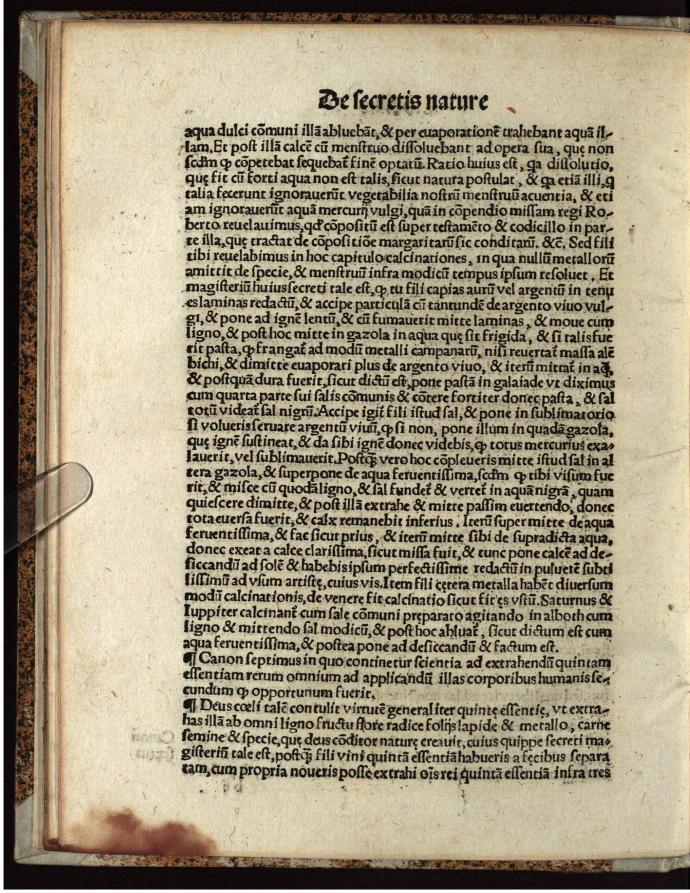 De secretis nature
aqua dulci cõmuni illã abluebãt, & per euaporationẽ trahebant aquã il-
lam. Et post illã calcẽ cũ menstruo dissoluebant ad opera sua, quę non
scdm ꝙ cõpetebat sequebat̃ finẽ optatũ. Ratio huius est, qa dissolutio,
quę fit cũ forti aqua non est talis, sicut natura postulat, & qa etiã illi, q
talia fecerunt ignorauerũt vegetabilia nostrũ menstruũ acuentia, & eti
am ignorauerũt aquã mercurij vulgi, quã in cõpendio missam regi Ro-
berto reuelauimus, qd' cõpositũ est super testamẽto & codicillo in par-
te illa, quę tractat de cõpositiõe margaritarũ sic conditarũ. &c̃. Sed fili
tibi reuelabimus in hoc capitulo calcinationes, in qua nullũ metallorũ
amittit de specie, & menstruũ infra modicũ tempus ipsum resoluet, Et
magisteriũ huius secreti tale est, ꝙ tu fili capias aurũ vel argentũ in tenu
es laminas redactũ, & accipe particulã cũ tantundẽ de argento viuo vul-
gi, & pone ad ignẽ lentũ, & cũ fumauerit mitte laminas, & moue cum
ligno, & post hoc mitte in gazola in aqua quę sit frigida, & si talis fue
rit pasta, ꝙ frangat̃ ad modũ metalli campanarũ, nisi reuertat̃ massa alẽ
bichi, & dimitte euaporari plus de argento viuo, & iterũ mittat̃ in aq̃,
& postquã dura fuerit, sicut dictũ est, pone pastã in galaiade vt diximus
cum quarta parte sui salis cõmunis & cõtere fortiter donec pasta, & sal
totũ videat̃ sal nigrũ. Accipe igit̃ fili istud sal, & pone in sublimatorio
si volueris seruare argentũ viuũ, ꝙ si non, pone illum in quadã gazola,
quę ignẽ sustineat, & da sibi ignẽ donec videbis, ꝙ totus mercurius exa-
lauerit, vel sublimauerit. Postꝙ̃ vero hoc cõpleueris mitte istud sal in al
tera gazola, & superpone de aqua feruentissima, scdm ꝙ tibi visum fue
rit, & misce cũ quodã ligno, & sal fundet̃ & vertet̃ in aquã nigrã, quam
quiescere dimitte, & post illã extrahe & mitte passim euertendo, donec
tota euersa fuerit, & calx remanebit inferius. Iterũ super mitte de aqua
feruentissima, & fac sicut prius, & iterũ mitte sibi de supradicta aqua,
donec exeat a calce clarissima, sicut missa fuit, & tunc pone calcẽ ad de-
siccandũ ad solẽ & habebis ipsum perfectissime redactũ in puluerẽ subti
lissimũ ad vsum artistę, cuius vis. Item fili cętera metalla habẽt diuersum
modũ calcinationis, de venere fit calcinatio sicut fit ęs vstũ. Saturnus &
Iuppiter calcinant̃ cum sale cõmuni preparato agitando in alboth cum
ligno & mittendo sal modicũ, & post hoc abluat̃, sicut dictum est cum
aqua feruentissima, & postea pone ad desiccandũ & factum est.
¶ Canon septimus in quo continetur scientia ad extrahendũ quintam
essentiam rerum omnium ad applicandũ illas corporibus humanis se-
cundum ꝙ opportunum fuerit.
¶ Deus cœli talẽ contulit virtutẽ generaliter quintę essentię, vt extra-
has illã ab omni ligno fructu flore radice folijs lapide & metallo, carne
semine & specie, que deus cõditor naturę creauit, cuius quippe secreti ma-
gisteriũ tale est, postꝙ̃ fili vini quintã essentiã habueris a fęcibus separa
tam, cum propria noueris posse extrahi oĩs rei quintã essentiã infra tres